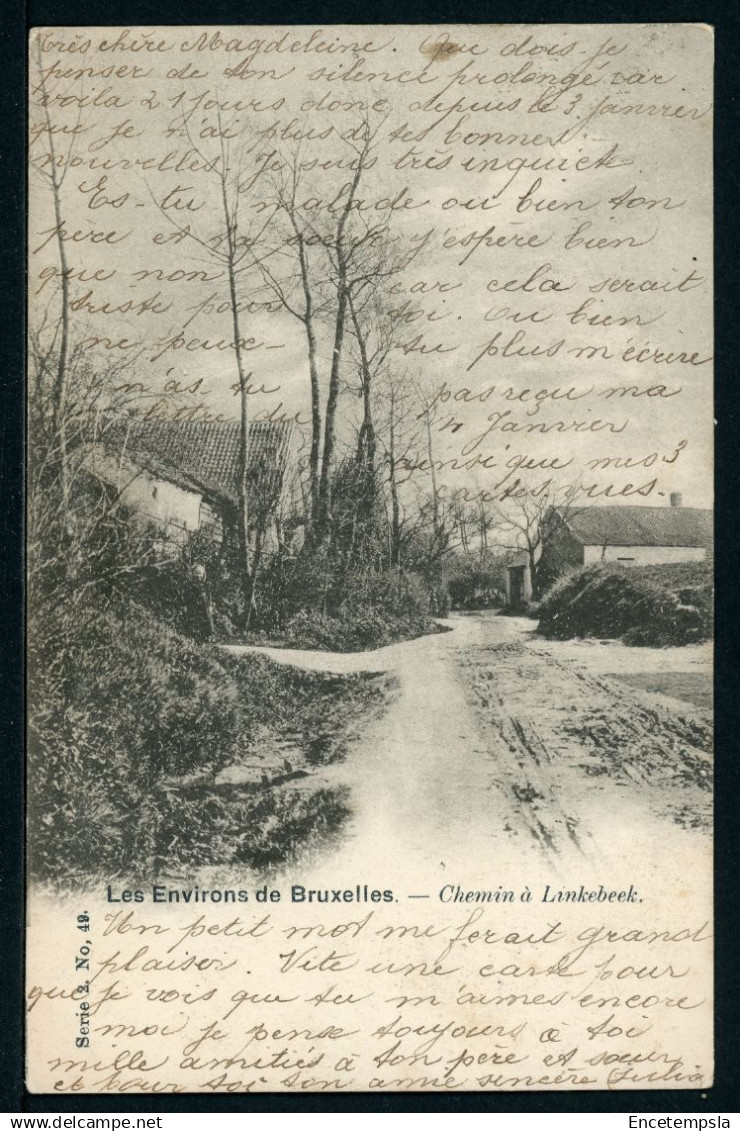 Très chère Magdeleine. Que dois-je
penser de ton silence prolongé car
voila 21 jours donc depuis le 3 janvier
que je n'ai plus de tes bonnes
nouvelles. Je suis très inquiete
Es-tu malade ou bien ton
père et ta soeur j'espère bien
que non car cela serait
triste pour toi. Ou bien
ne peux-tu plus m'écrire
n'as-tu pas reçu ma
lettre du 4 Janvier
ainsi que mes 3
cartes vues.
Les Environs de Bruxelles. — Chemin à Linkebeek.
Serie 2. No, 49.
Un petit mot me ferait grand
plaisir. Vite une carte pour
que je vois que tu m'aimes encore
moi je pense toujours à toi
mille amitiés à ton père et sœur
et pour toi ton amie sincère Julia
Encetempsla
www.delcampe.net